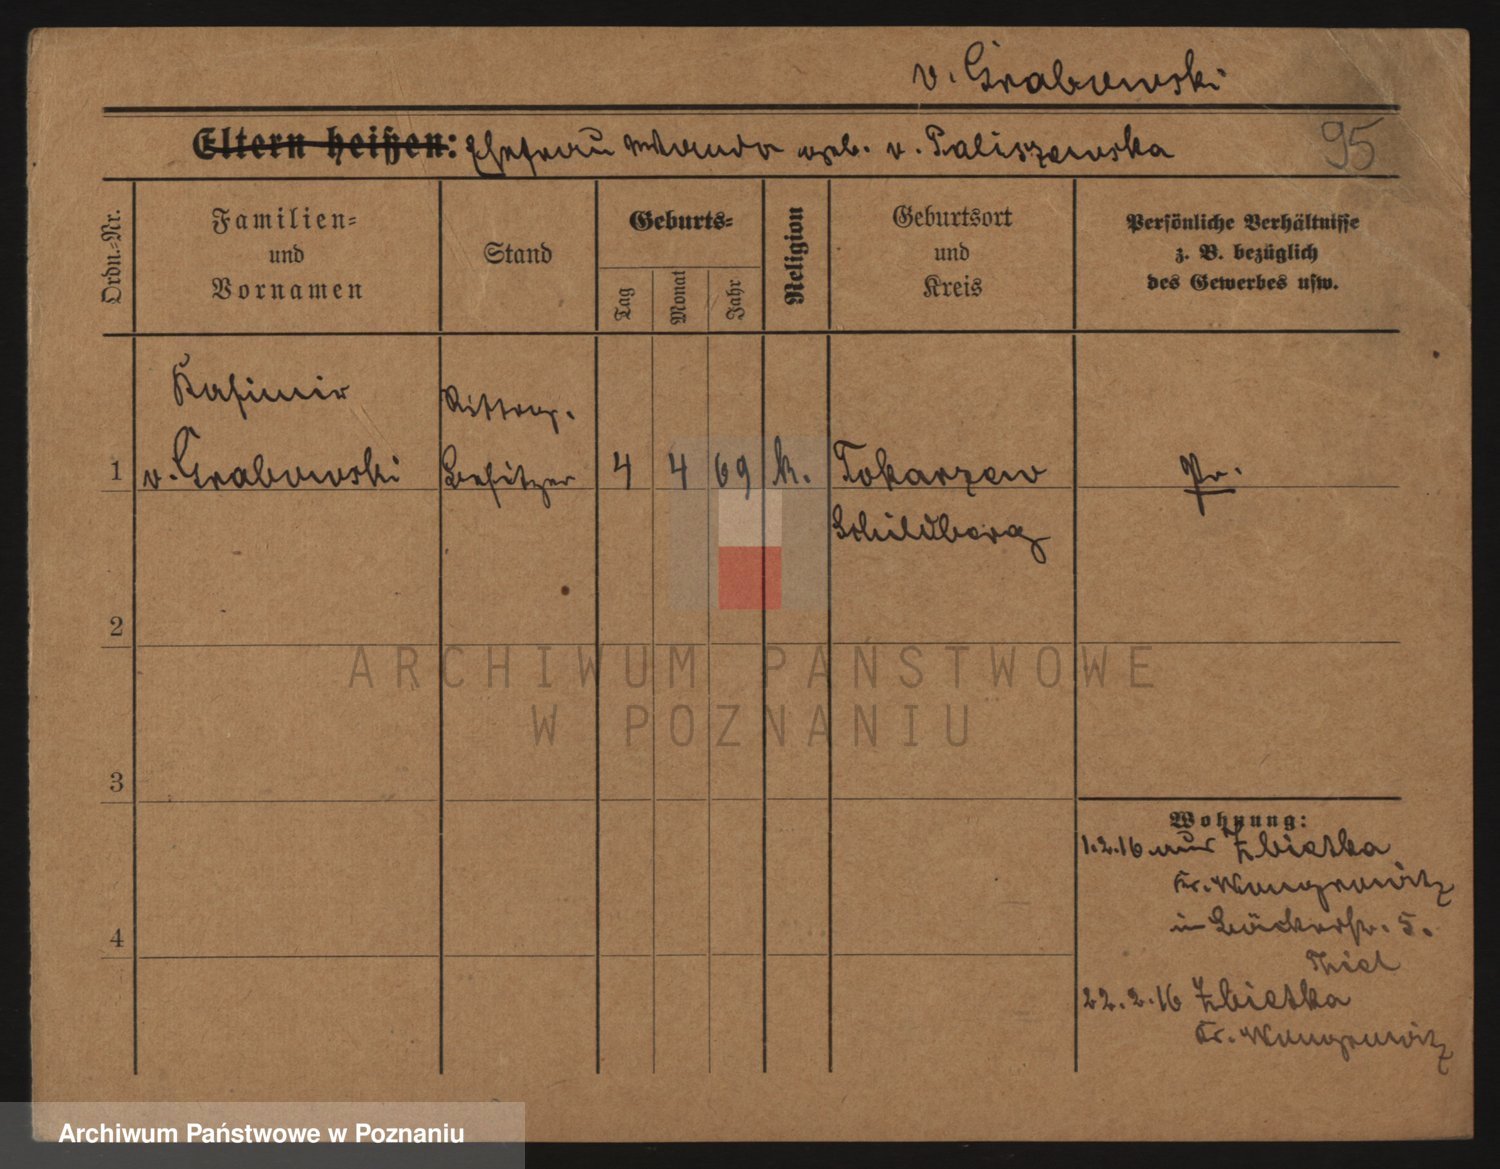 v. Grabowski
95
Eltern heißen: Ehefrau Wanda geb. v. Paliszewska
Ordn.-Nr.
Familien-
und
Vornamen
Stand
Geburts-
Tag
Monat
Jahr
Religion
Geburtsort
und
Kreis
Persönliche Verhältnisse
z. B. bezüglich
des Gewerbes usw.
Kasimir
Ritterg.
1 v. Grabowski Besitzer 4 4 69 k. Tokarzew Pr.
Schildberg
2
ARCHIWUM PAŃSTWOWE
W POZNANIU
3
Wohnung:
1.2.16 aus Zbietka
Kr. Wongrowitz
4
in Bäckerstr. 5.
Thiel
22.2.16 Zbietka
Kr. Wongrowitz
Archiwum Państwowe w Poznaniu